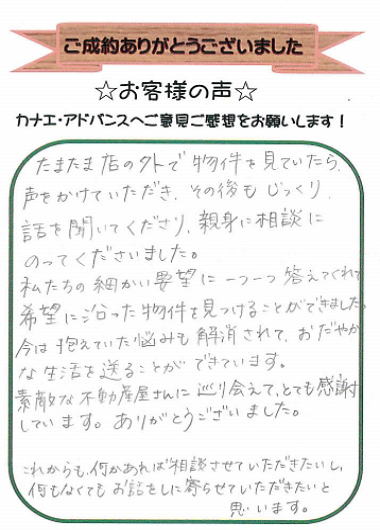 ご成約ありがとうございました
☆お客様の声☆
カナエ・アドバンスへご意見ご感想をお願いします！
たまたま店の外で物件を見ていたら、
声をかけていただき、その後もじっくり、
話を聞いてくださり、親身に相談に
のってくださいました。
私たちの細かい要望に一つ一つ答えてくれて
希望に沿った物件を見つけることができました。
今は抱えていた悩みも解消されて、おだやか
な生活を送ることができています。
素敵な不動産屋さんに巡り会えて、とても感謝
しています。ありがとうございました。
これからも、何かあれば相談させていただきたいし、
何もなくてもお話をしに寄らせていただきたいと
思います。